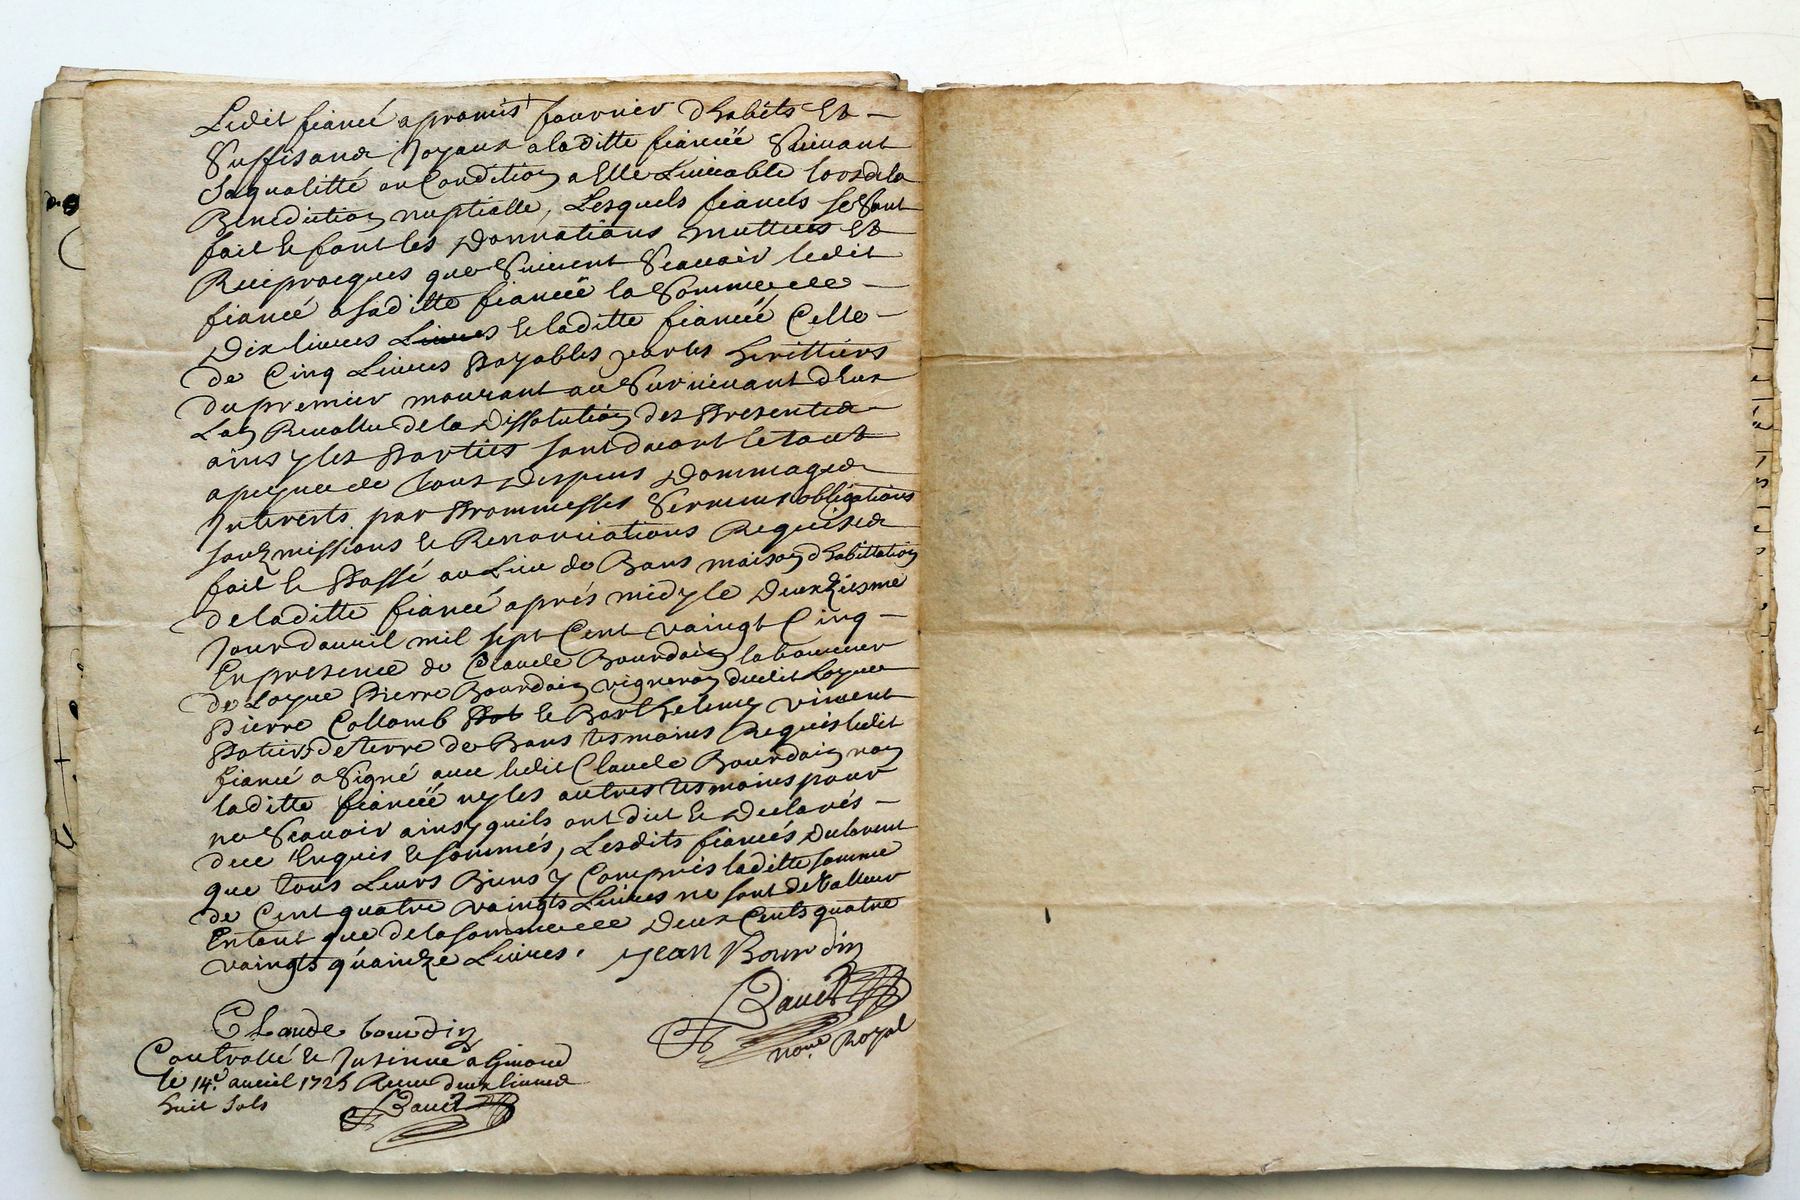 Ledit fiancé a promis fournir d'habits et
Suffisans Joyaux a laditte fiancéé Suivant
Sa qualitté ou Condition a Elle Livrable lors de la
Benediction nuptialle, Lesquels fiancés se sont
fait & font les Donnations mutueés et
Reciprocques que Suivent Scavoir ledit
fiancé a saditte fiancéé la Somme de
Dix livres Livres & laditte fiancéé Celle
de Cinq Livres Payables par les heritiers
du premier mourant au Survivant d'Eux
Lors de la Dissolution des Presentes
ainsy les Parties sont d'acort le tout
a peyne de tous Despens Dommages
Interests par Prommesses Sermens obligations
soubzmissions & Renonciations Requises
fait & Passé au Lieu de Bans maison d'habittation
de laditte fiancéé aprés midy le Deuxziesme
Jour d'avril mil sept Cent vaingt Cinq
En presence de Claude Bourdoin laboureur
de Loyre Pierre Bourdoin vigneron dudit Loyre
Pierre Collomb Pot & Barthelemy vincent
Potiers de terre de Bans tesmoins Requis ledit
fiancé a Signé avec ledit Claude Bourdoin non
laditte fiancéé ny les autres tesmoins pour
ne Scavoir ainsy quils ont dict & Declarés
de ce Enquis & sommés, Lesdits fiancés Declarent
que tous Leurs Biens y Compris laditte somme
de Cent quatre vaingts Livres ne sont de Valleur
Entout que de la somme de Deux Cents quatre
vaingts quainze Livres. Jean Bourdin
Bauet
no.re Royal
Claude bourdin
Controllé & Insinué a Givord
le 14.e avril 1725 Receu deux livres
huit sols
Bauet